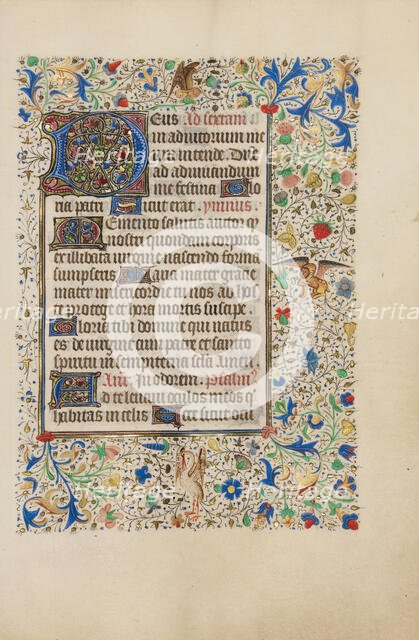 Deus Ad sextam
in adiutorium me
um intende. Dñe
ad adiuuandum
me festina Glo
ria patri Sicut erat. ymnus.
Memento salutis auctor q̄
nostri quondam corporis
ex illibata uirgine nascendo formā
sumpseris Maria mater gracie
mater misericordie tu nos ab hos
te protege et hora mortis suscipe
Gloria tibi domine qui natus
es de uirgine cum patre et sancto
spiritu in sempiterna secla Amen
Anṫ. Psalm⁹
Ad te leuaui oculos meos q̄
habitas in celis Ecce sicut oculi
Heritage
Heritage
Heritage
Heritage
Heritage
Heritage
images
images
images
C